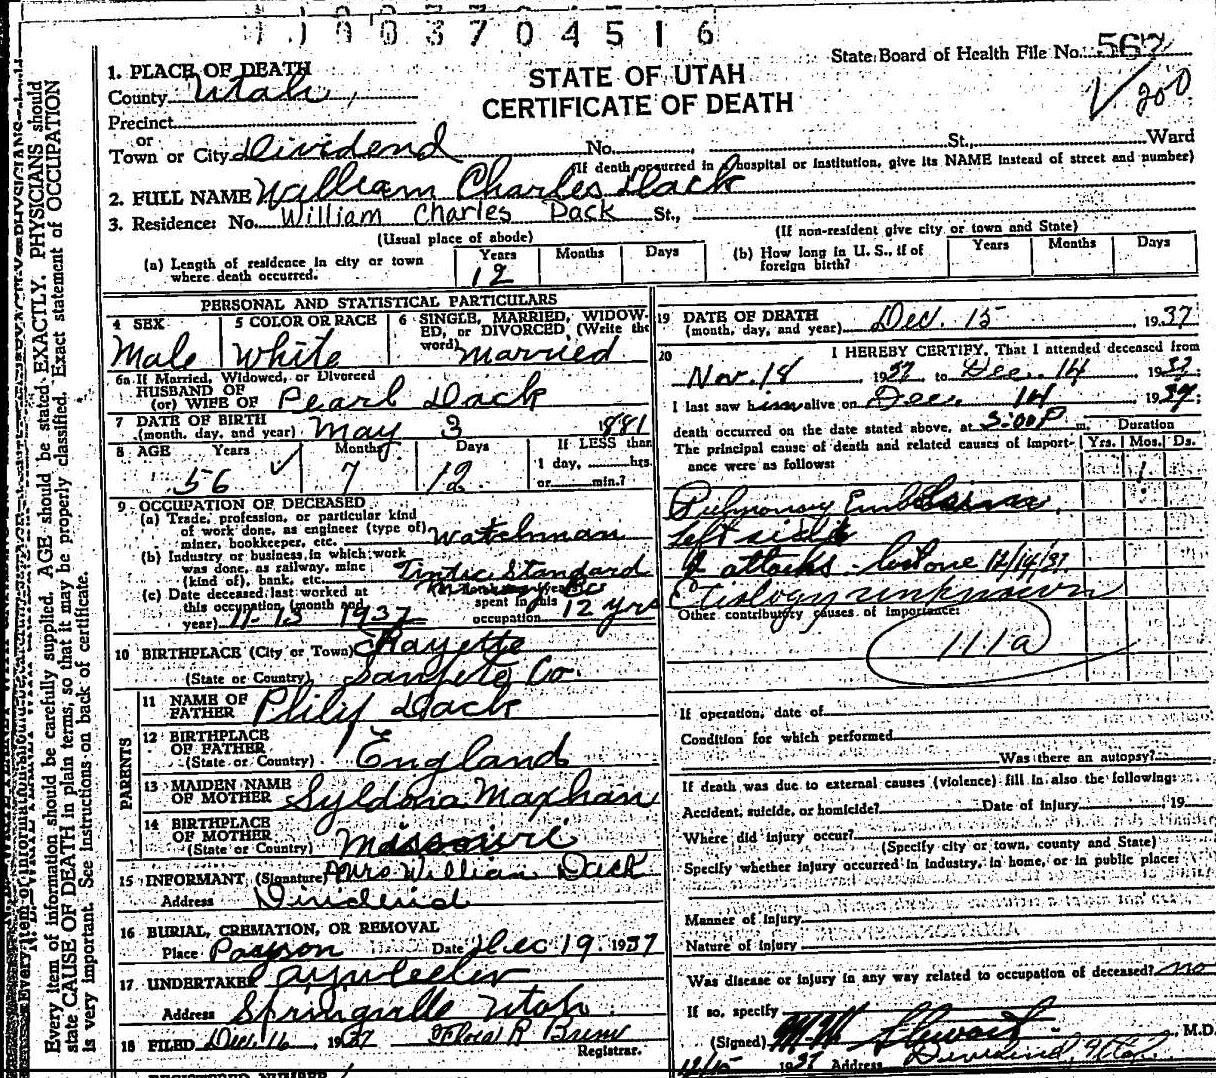 1003704516
State Board of Health File No. 567
1. PLACE OF DEATH
STATE OF UTAH
CERTIFICATE OF DEATH
200
County Utah
Precinct
or
Town or City Dividend No. St., Ward
(If death occurred in a hospital or institution, give its NAME instead of street and number)
2. FULL NAME William Charles Dack
3. Residence: No. William Charles Dack St.,
(Usual place of abode) (If non-resident give city or town and State)
(a) Length of residence in city or town where death occurred. Years 12 Months Days
(b) How long in U. S., if of foreign birth? Years Months Days
PERSONAL AND STATISTICAL PARTICULARS
4 SEX Male
5 COLOR OR RACE White
6 SINGLE, MARRIED, WIDOWED, or DIVORCED (Write the word) married
6a If Married, Widowed, or Divorced
HUSBAND OF
(or) WIFE OF Pearl Dack
7 DATE OF BIRTH
(month, day, and year) May 3 1881
8 AGE Years 56 Months 7 Days 12
If LESS than
1 day, hrs.
or min.?
9 OCCUPATION OF DECEASED
(a) Trade, profession, or particular kind
of work done, as engineer (type of)
miner, bookkeeper, etc. watchman
(b) Industry or business in which work
was done, as railway, mine
(kind of), bank, etc. Tintic Standard
(c) Date deceased last worked at
this occupation (month and
year) 11-13 1937
spent in this
occupation 12 yrs
10 BIRTHPLACE (City or Town) Fayette
(State or Country) Sanpete Co.
PARENTS
11 NAME OF FATHER Philip Dack
12 BIRTHPLACE OF FATHER
(State or Country) England
13 MAIDEN NAME OF MOTHER Syldona Maxhan
14 BIRTHPLACE OF MOTHER
(State or Country) Missouri
15 INFORMANT (Signature) Mrs William Dack
Address Dividend
16 BURIAL, CREMATION, OR REMOVAL
Place Payson Date Dec 19. 1937
17. UNDERTAKER
Address Springville Utah
18 FILED Dec. 16, 1937 Flora R
Registrar.
19 DATE OF DEATH
(month, day, and year) Dec. 15, 1937
20 I HEREBY CERTIFY, That I attended deceased from
Nov. 18, 1937 to Dec. 14 1937
I last saw him alive on Dec. 14 1937;
death occurred on the date stated above, at 3:00 P m.
Duration
Yrs. Mos. Ds.
The principal cause of death and related causes of importance were as follows:
1
Pulmonary
Left side
2 attacks - last one 12/14/37.
Etiology unknown
Other contributory causes of importance:
111a
If operation, date of
Condition for which performed
Was there an autopsy?
If death was due to external causes (violence) fill in also the following:
Accident, suicide, or homicide? Date of injury 19
Where did injury occur?
(Specify city or town, county and State)
Specify whether injury occurred in industry, in home, or in public place:
Manner of Injury
Nature of Injury
Was disease or injury in any way related to occupation of deceased? no
If so, specify
(Signed) Stewart M.D.
12/15 1937 Address Dividend, Utah
Every item of information should be carefully supplied. AGE should be stated EXACTLY. PHYSICIANS should
state CAUSE OF DEATH in plain terms, so that it may be properly classified. Exact statement of OCCUPATION
is very important. See instructions on back of certificate.